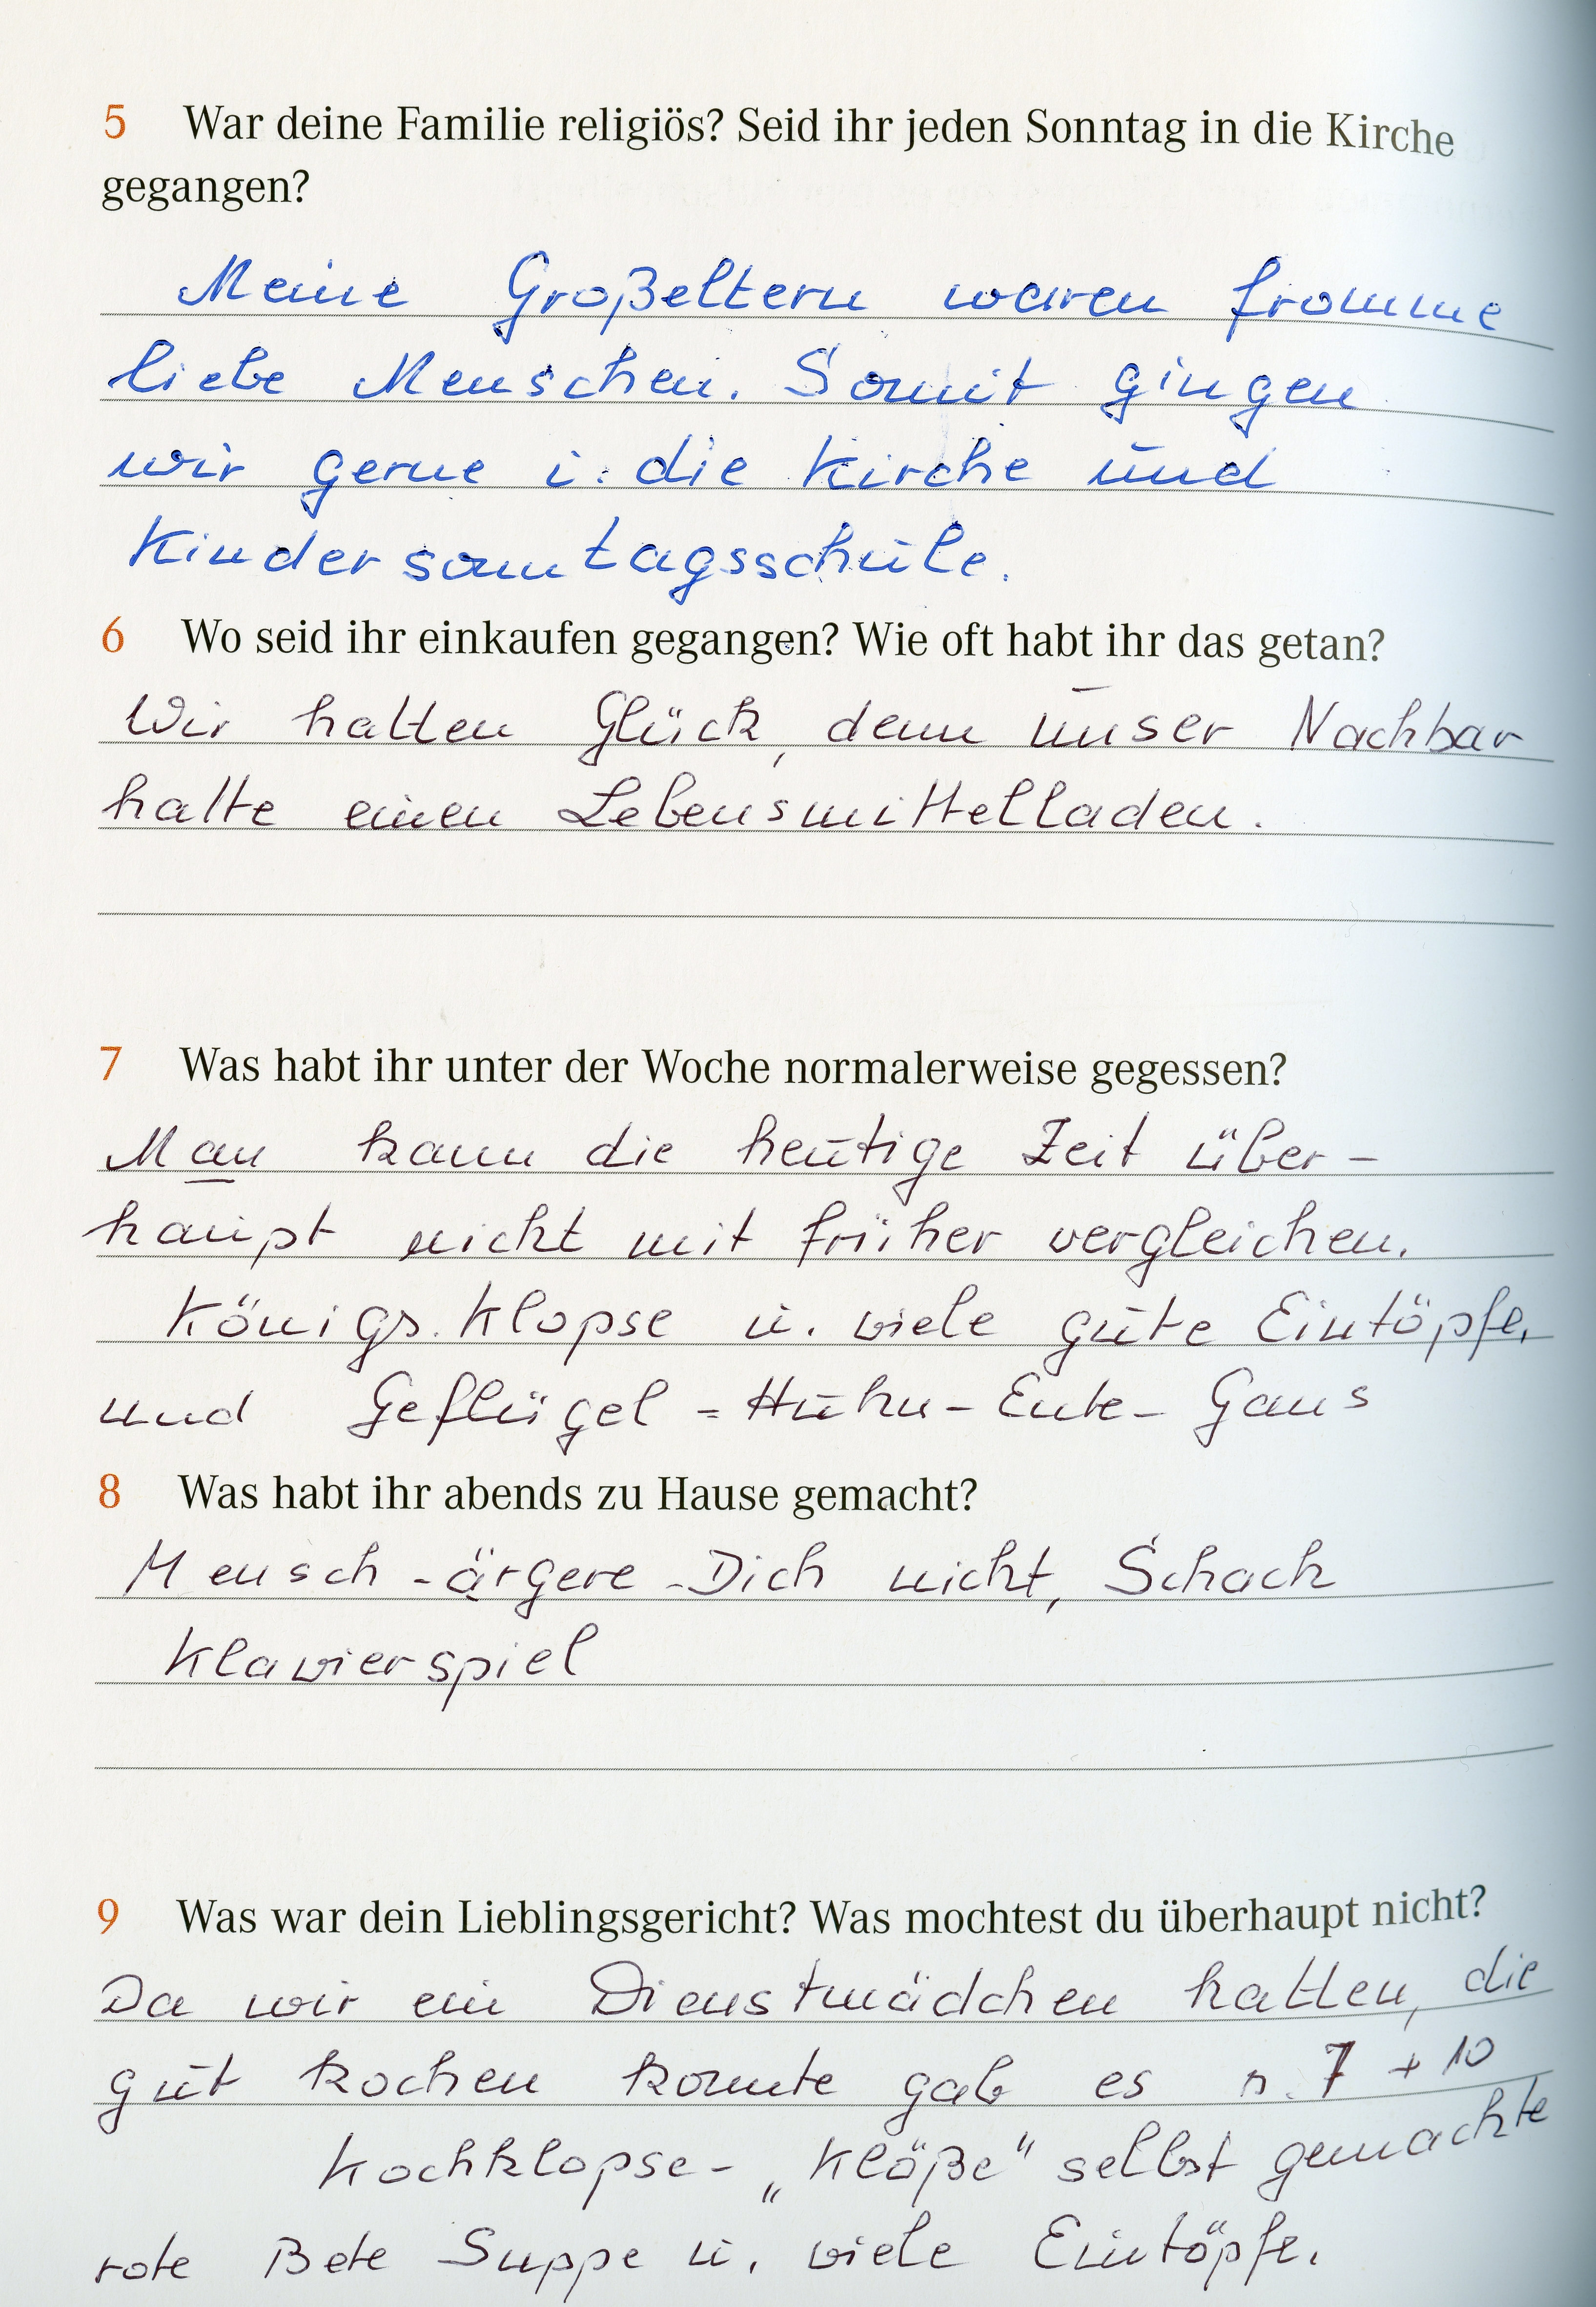 5 War deine Familie religiös? Seid ihr jeden Sonntag in die Kirche
gegangen?
Meine Großeltern waren fromme
liebe Menschen. Somit gingen
wir gerne i. die Kirche und
Kindersonntagsschule.
6 Wo seid ihr einkaufen gegangen? Wie oft habt ihr das getan?
Wir hatten Glück, denn unser Nachbar
hatte einen Lebensmittelladen.
7 Was habt ihr unter der Woche normalerweise gegessen?
Man kann die heutige Zeit über-
haupt nicht mit früher vergleichen.
Königs. Klopse u. viele gute Eintöpfe,
und Geflügel = Huhn - Ente - Gans
8 Was habt ihr abends zu Hause gemacht?
Mensch - ärgere - Dich nicht, Schach
Klavierspiel
9 Was war dein Lieblingsgericht? Was mochtest du überhaupt nicht?
Da wir ein Dienstmädchen hatten, die
gut kochen konnte gab es n. 7 + 10
Kochklopse - „Klöße" selbst gemachte
rote Bete Suppe u. viele Eintöpfe.